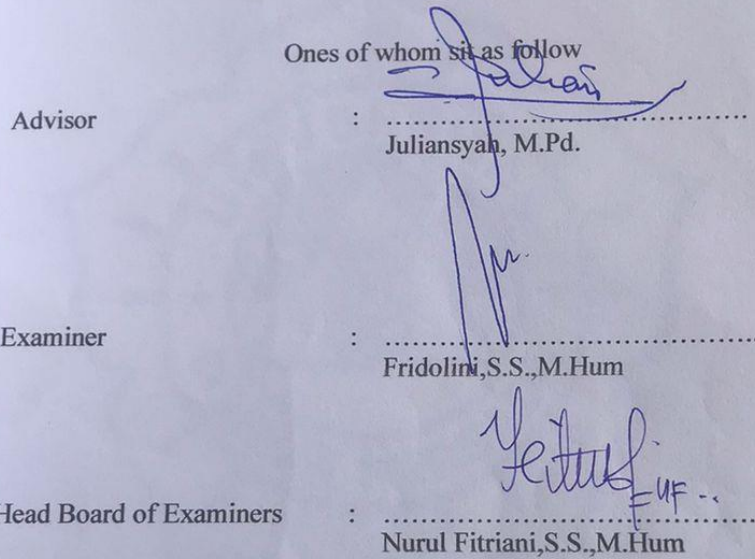 Ones of whom sit as follow
Advisor : ........................................
Juliansyah, M.Pd.
Examiner : ........................................
Fridolini,S.S.,M.Hum
Head Board of Examiners : ........................................
Nurul Fitriani,S.S.,M.Hum